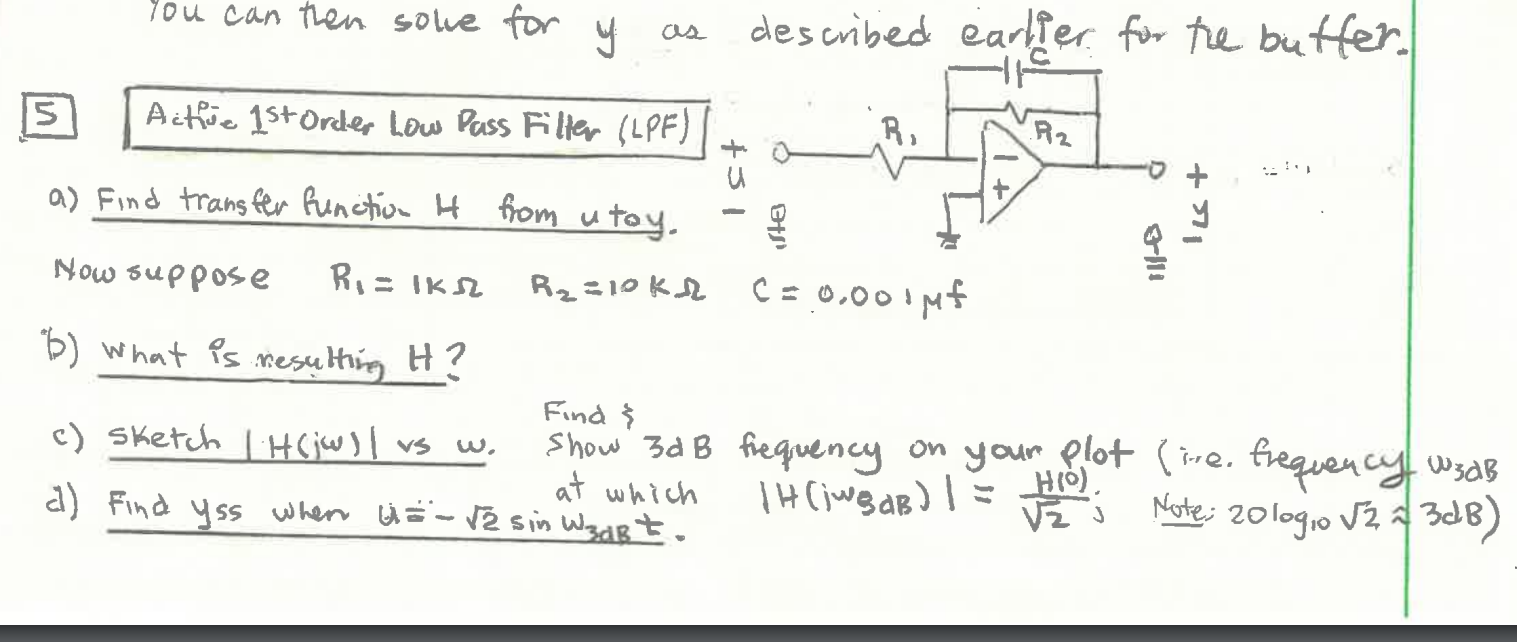 You can then solve for y as described earlier for the buffer.
5 Active 1st Order Low Pass Filter (LPF)
C
R₂
R₁
−
+
+
u
−
+
y
−
a) Find transfer function H from u to y.
Now suppose R₁ = 1KΩ R₂ = 10KΩ C = 0.001μf
b) What is resulting H?
c) Sketch |H(jω)| vs ω. Find & Show 3dB frequency on your plot (i.e. frequency ω3dB
at which |H(jω3dB)| = H(0)/√2; Note: 20log₁₀√2 ≈ 3dB)
d) Find yss when u = -√2 sin ω3dB t.